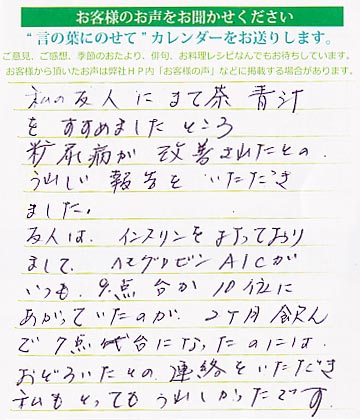 お客様のお声をお聞かせください
“言の葉にのせて”カレンダーをお送りします。
ご意見、ご感想、季節のおたより、俳句、お料理レシピなんでもお待ちしています。
お客様から頂いたお声は弊社HP内「お客様の声」などに掲載する場合があります。
私の友人に まて茶 青汁
を すすめました ところ
糖尿病が 改善されたとの
うれしい 報告を いただき
ました。
友人は、インスリンを 打っており
まして、ヘモグロビン A1Cが
いつも、9点台か 10位に
あがっていたのが、2ケ月 飲ん
で 7点代台に なったのには、
おどろいたとの 連絡をいただき
私も とっても うれしかったです